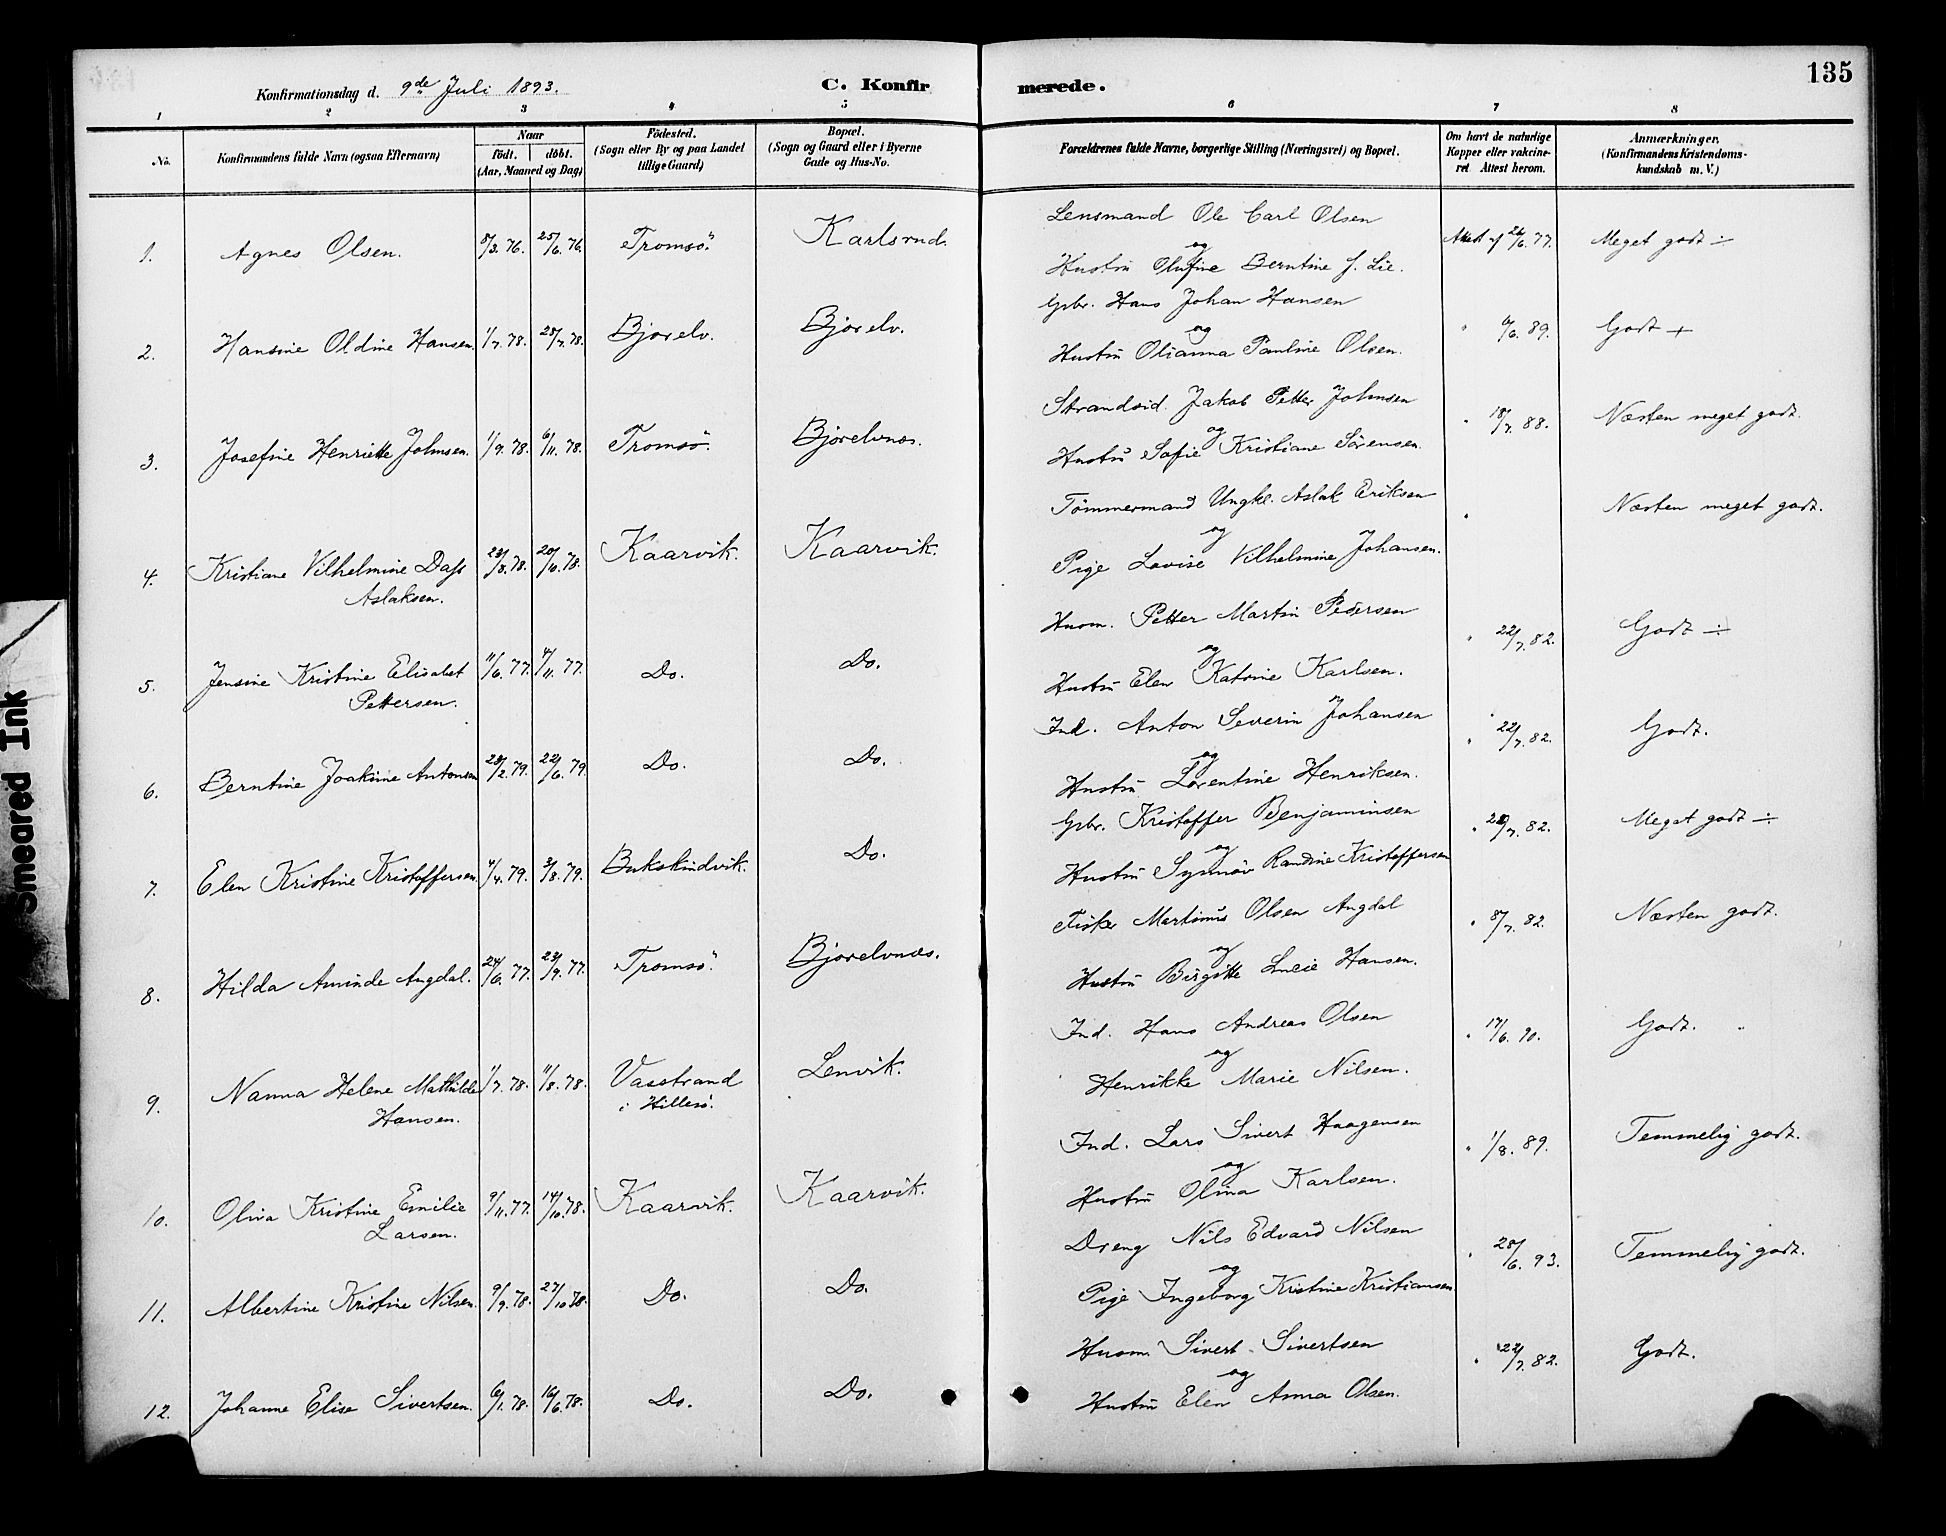 135
Konfirmationsdag d. 9de Juli 1893.
C. Konfirmerede.
1 2 3 4 5 6 7 8
No. Konfirmandens fulde Navn (ogsaa Efternavn)
Naar
født. døbt.
(Aar, Maaned og Dag)
Fødested.
(Sogn eller By og paa Landet
tillige Gaard)
Bopæl.
(Sogn og Gaard eller i Byerne
Gade og Hus-No.
Forældrenes fulde Navne, borgerlige Stilling (Næringsvei) og Bopæl.
Om havt de naturlige
Kopper eller vakcine-
ret. Attest herom.
Anmærkninger.
(Konfirmandens Kristendoms-
kundskab m. V.)
Lensmand Ole Carl Olsen
1. Agnes Olsen. 8/3. 76. 25/6. 76. Tromsø. Karlsund. og Attest af 26/6. 77. Meget godt ÷
Hustru Olufine Berntine f. Lie.
Gbr. Hans Johan Hansen
2. Hansine Oldine Hansen. 1/7. 78. 28/7. 78. Bjorelv. Bjorelv. og " 6/6. 89. Godt +
Hustru Olianna Pauline Olsen.
Strandsid. Jakob Petter Johnsen
3. Josefine Henriette Johnsen. 1/9. 78. 6/11. 78. Tromsø. Bjorelvnes. og " 18/7. 88. Næsten meget godt.
Hustru Sofie Kristiane Sørensen.
Tømmermand Ungkl. Aslak Eriksen
4. Kristiane Vilhelmine Dass 23/3. 78. 20/6. 78. Kaarvik. Kaarvik. og " Næsten meget godt.
Aslaksen.
Pige Lovise Vilhelmine Johansen.
Husm. Petter Martin Pedersen
5. Jensine Kristine Elisabet 11/6. 77. 4/11. 77. Do. Do. og " 22/7. 82. Godt ÷
Pettersen.
Hustru Elen Katrine Karlsen.
Ind. Anton Severin Johansen
6. Berntine Joakime Antonsen 23/2. 79. 22/6. 79. Do. Do. og " 22/7. 82. Godt.
Hustru Lorentine Henriksen.
Gbr. Kristoffer Benjaminsen
7. Elen Kristine Kristoffersen. 4/4. 79. 3/8. 79. Bukskindvik. Do. og " /7. 82. Meget godt ÷
Hustru Synnøv Randine Kristoffersen
Fisker Martinus Olsen Angdal
8. Hilda Aminde Angdal. 24/6. 77. 23/9. 77. Tromsø. Bjorelvnes. og " 8/7. 82. Næsten godt.
Hustru Birgitte Lucie Hansen.
Ind. Hans Andreas Olsen
9. Nanna Helene Mathilde 1/7. 78. 11/8. 78. Vasstrand Lenvik. og " 17/6. 90. Godt.
Hansen. i Hillesø.
Henrikke Marie Nilsen.
Ind. Lars Sivert Haagensen
10. Olina Kristine Emilie 9/11. 77. 14/10. 78. Kaarvik. Kaarvik. og " 1/8. 89. Temmelig godt.
Larsen.
Hustru Olina Karlsen.
Dreng Nils Edvard Nilsen
11. Albertine Kristine Nilsen. 9/9. 78. 27/10 78. Do. Do. og " 28/6. 93. Temmelig godt.
Pige Ingeborg Kristine Kristiansen
Husm. Sivert Sivertsen
12. Johanne Elise Sivertsen. 6/1. 78. 16/6. 78. Do. Do. og " 22/7. 82. Godt.
Hustru Elen Anna Olsen.
Smeared Ink